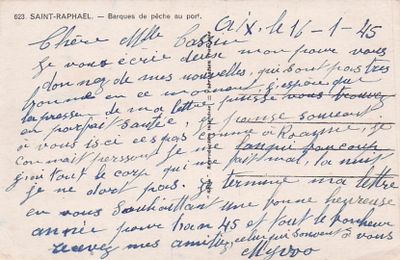 623. SAINT-RAPHAEL. — Barques de pêche au port.
Aix. le 16-1-45
Chère Mlle Cassin
je vous écrie deux mon pour vous
donnez de mes nouvelles, qui sont pas tres
bonne en ce moment, j'espère que
la presson de ma lettre puisse vous trouvez
en parfait santée, je panse souvant
à vous ici ces pas comme à Roanne, je
connait personn je me languis baucoup
j'ai tout le corp qui me fait mal, la nuit
je ne dort pas. je termine ma lettre
en vous souhaittant une bonne heureuse
année pour l'an 45 et tout le bonheur
recevez mes amitiez, celui qui souvent à vous